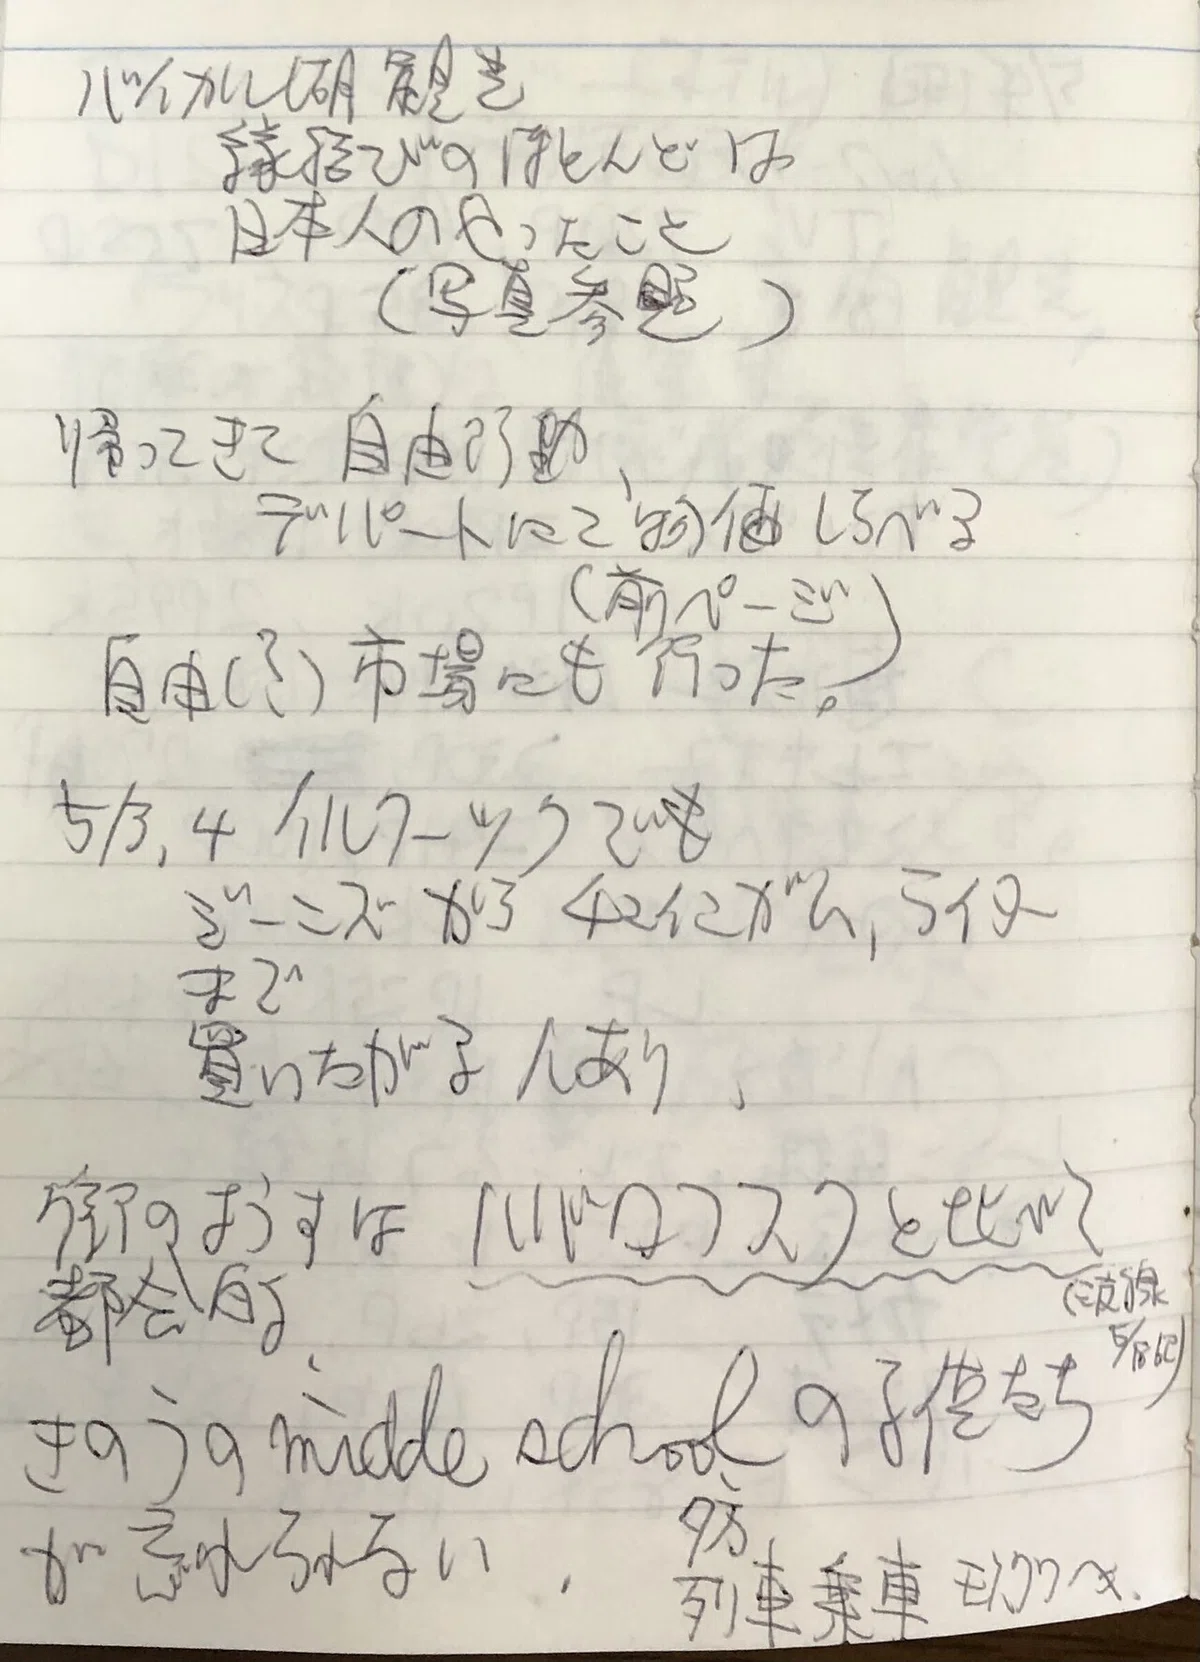 バイカル湖観光
縁結びのほとんどは
日本人のやったこと
(写真参照)
帰ってきて自由行動、
デパートにて物価しらべる
(前ページ)
自由(?)市場にも行った。
5/3,4 イルクーツクでも
ジーンズから ガム,ライター
まで
買いたがる人あり、
街のようすはハバロフスクと比べて
都会的、
(波線
5/18記)
きのうのmiddle schoolの子供たち
が忘れられない.
夕方
列車乗車 モンゴルへ.